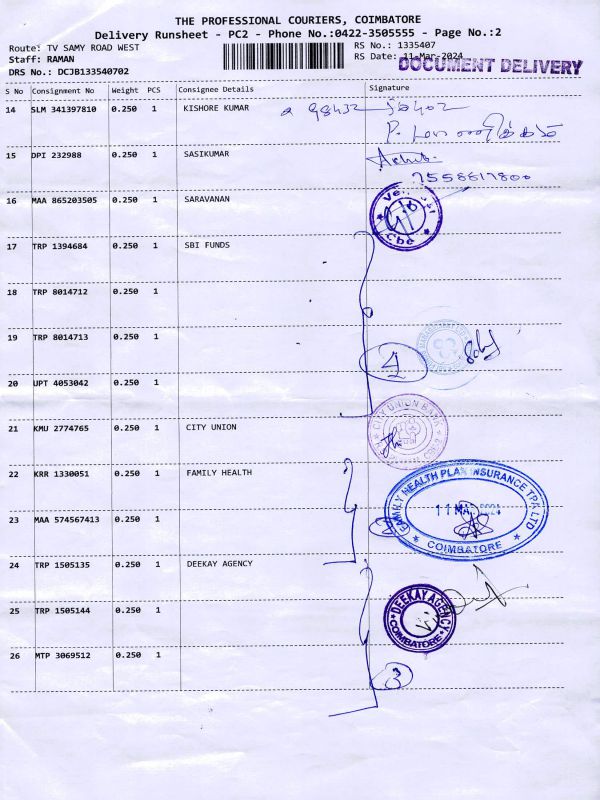 THE PROFESSIONAL COURIERS, COIMBATORE
Delivery Runsheet - PC2 - Phone No.:0422-3505555 - Page No.:2
Route: TV SAMY ROAD WEST
RS No.: 1335407
Staff: RAMAN
RS Date: 11-Mar-2024
DOCUMENT DELIVERY
DRS No.: DCJB133540702
S No Consignment No Weight PCS Consignee Details Signature
14 SLM 341397810 0.250 1 KISHORE KUMAR
15 DPI 232988 0.250 1 SASIKUMAR
7558617800
16 MAA 865203505 0.250 1 SARAVANAN
Cbe
17 TRP 1394684 0.250 1 SBI FUNDS
18 TRP 8014712 0.250 1
19 TRP 8014713 0.250 1
4
20 UPT 4053042 0.250 1
21 KMU 2774765 0.250 1 CITY UNION
CITY UNION BANK
22 KRR 1330051 0.250 1 FAMILY HEALTH
FAMILY HEALTH PLAN INSURANCE TPA LTD
11 MAR 2024
COIMBATORE
23 MAA 574567413 0.250 1
24 TRP 1505135 0.250 1 DEEKAY AGENCY
DEEKAY AGENCY
COIMBATORE
25 TRP 1505144 0.250 1
26 MTP 3069512 0.250 1
3